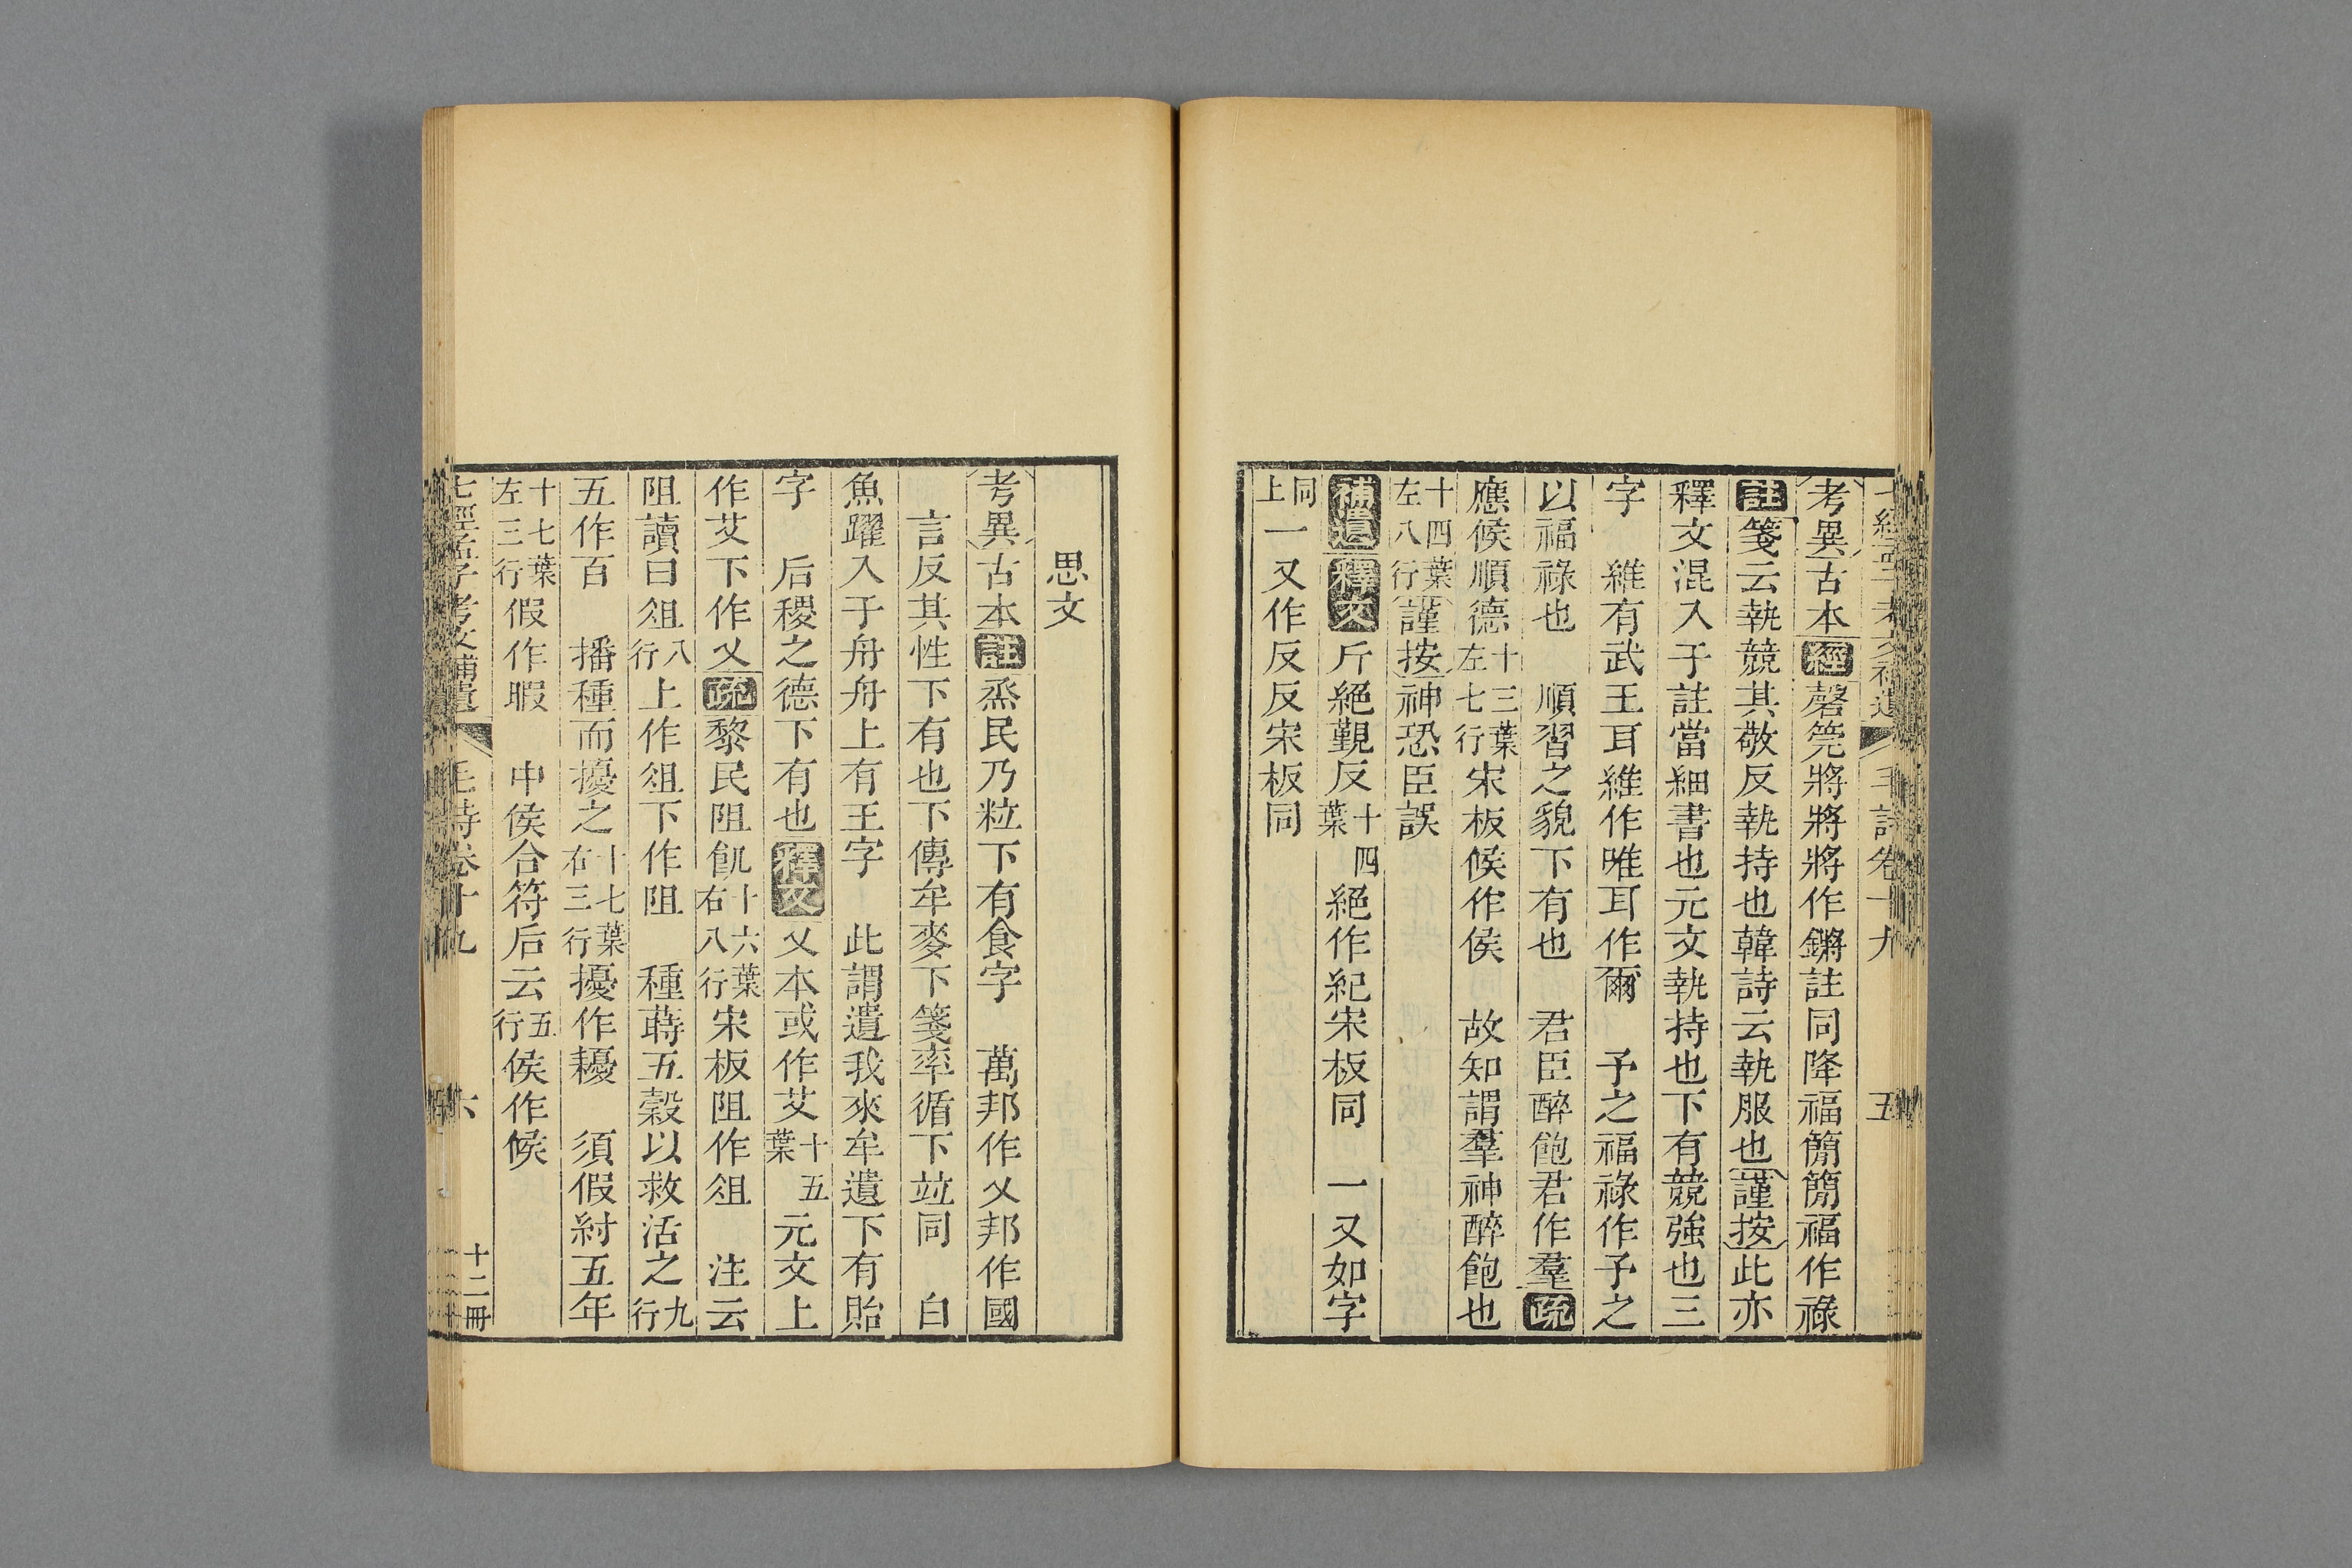 七經孟子考文補遺 毛詩卷十九 五
考異古本經磬筦將將將作鏘註同降福簡簡福作祿
註箋云執競其敬反執持也韓詩云執服也謹按此亦
釋文混入于註當細書也元文執持也下有競強也三
字 維有武王耳維作唯耳作爾 予之福祿作予之
以福祿也 順習之貌下有也 君臣醉飽君作羣疏
應候順德十三葉左七行宋板候作侯 故知謂羣神醉飽也
十四葉左八行謹按神恐臣誤
補遺釋文斤絕覲反十四葉絕作紀宋板同 一又如字
同上一又作反反宋板同
思文
考異古本註烝民乃粒下有食字 萬邦作乂邦作國
言反其性下有也下傳牟麥下箋率循下竝同 白
魚躍入于舟舟上有王字 此謂遺我來牟遺下有貽
字 后稷之德下有也釋文乂本或作艾十五葉元文上
作艾下作乂疏黎民阻飢十六葉右八行宋板阻作俎 注云
阻讀曰俎八行上作俎下作阻 種蒔五穀以救活之九行
五作百 播種而擾之十七葉右三行擾作耰 須假紂五年
十七葉左三行假作暇 中侯合符后云五行侯作候
七經孟子考文補遺 毛詩卷十九 六 十二冊